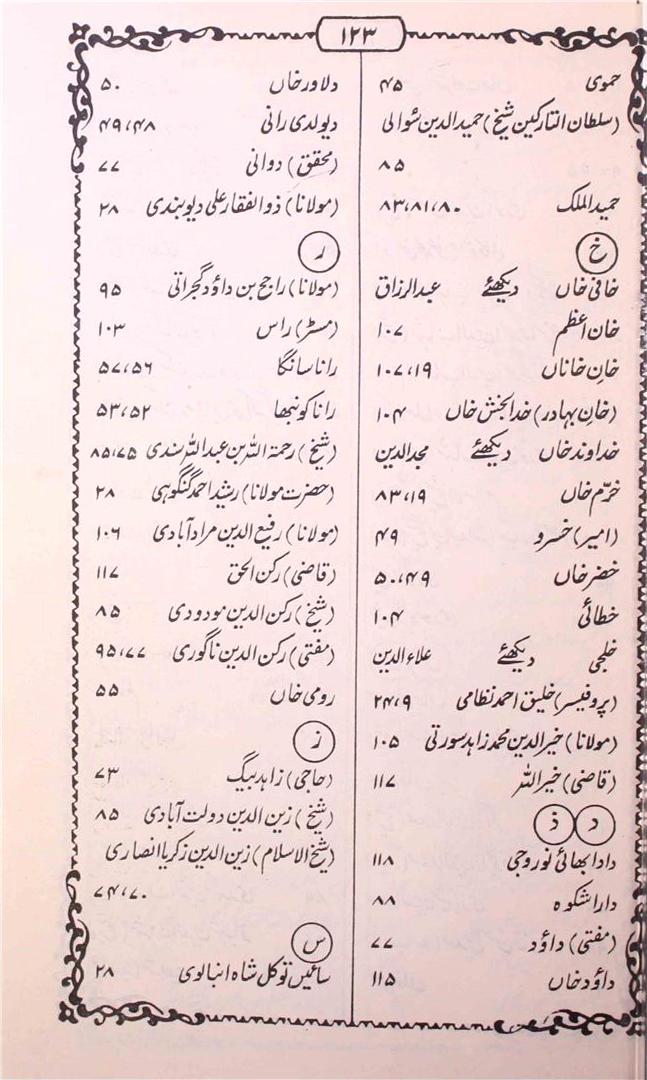 ۱۲۳
حموی ۴۵
(سلطان التارکین شیخ) حمید الدین سُوالی
۸۵
حمید الملک ۸۰، ۸۱، ۸۳
خ
خافی خاں دیکھئے عبدالرزاق
خان اعظم ۱۰۷
خانِ خاناں ۱۹، ۱۰۷
(خانِ بہادر) خدا بخش خاں ۱۰۴
خداوند خاں دیکھئے مجدالدین
خرّم خاں ۱۹، ۸۳
(امیر) خسرو ۴۹
خضر خاں ۴۹، ۵۰
خطائی ۱۰۴
خلجی دیکھئے علاء الدین
(پروفیسر) خلیق احمد نظامی ۹، ۲۴
(مولانا) خیرالدین محمد زاہد سورتی ۱۰۵
(قاضی) خیر اللہ ۱۱۷
د ذ
دادا بھائی نوروجی ۱۱۸
داراشکوہ ۸۸
(مفتی) داؤد ۷۷
داؤد خاں ۱۱۵
دلاور خاں ۵۰
دیولدی رانی ۴۸، ۴۹
(محقق) دوانی ۷۷
(مولانا) ذوالفقار علی دیوبندی ۲۸
ر
(مولانا) راجح بن داؤد گجراتی ۹۵
(مسٹر) راس ۱۰۳
رانا سانگا ۵۶، ۵۷
رانا کونبھا ۵۲، ۵۳
(شیخ) رحمۃ اللہ بن عبداللہ سندی ۷۵، ۸۵
(حضرت مولانا) رشید احمد گنگوہی ۲۸
(مولانا) رفیع الدین مرادآبادی ۱۰۶
(قاضی) رکن الحق ۱۱۷
(شیخ) رکن الدین مودودی ۸۵
(مفتی) رکن الدین ناگوری ۷۷، ۹۵
رومی خاں ۵۵
ز
(حاجی) زاہد بیگ ۷۳
(شیخ) زین الدین دولت آبادی ۸۵
(شیخ الاسلام) زین الدین زکریا انصاری
۷۰، ۷۴
س
سائیں توکل شاہ انبالوی ۲۸